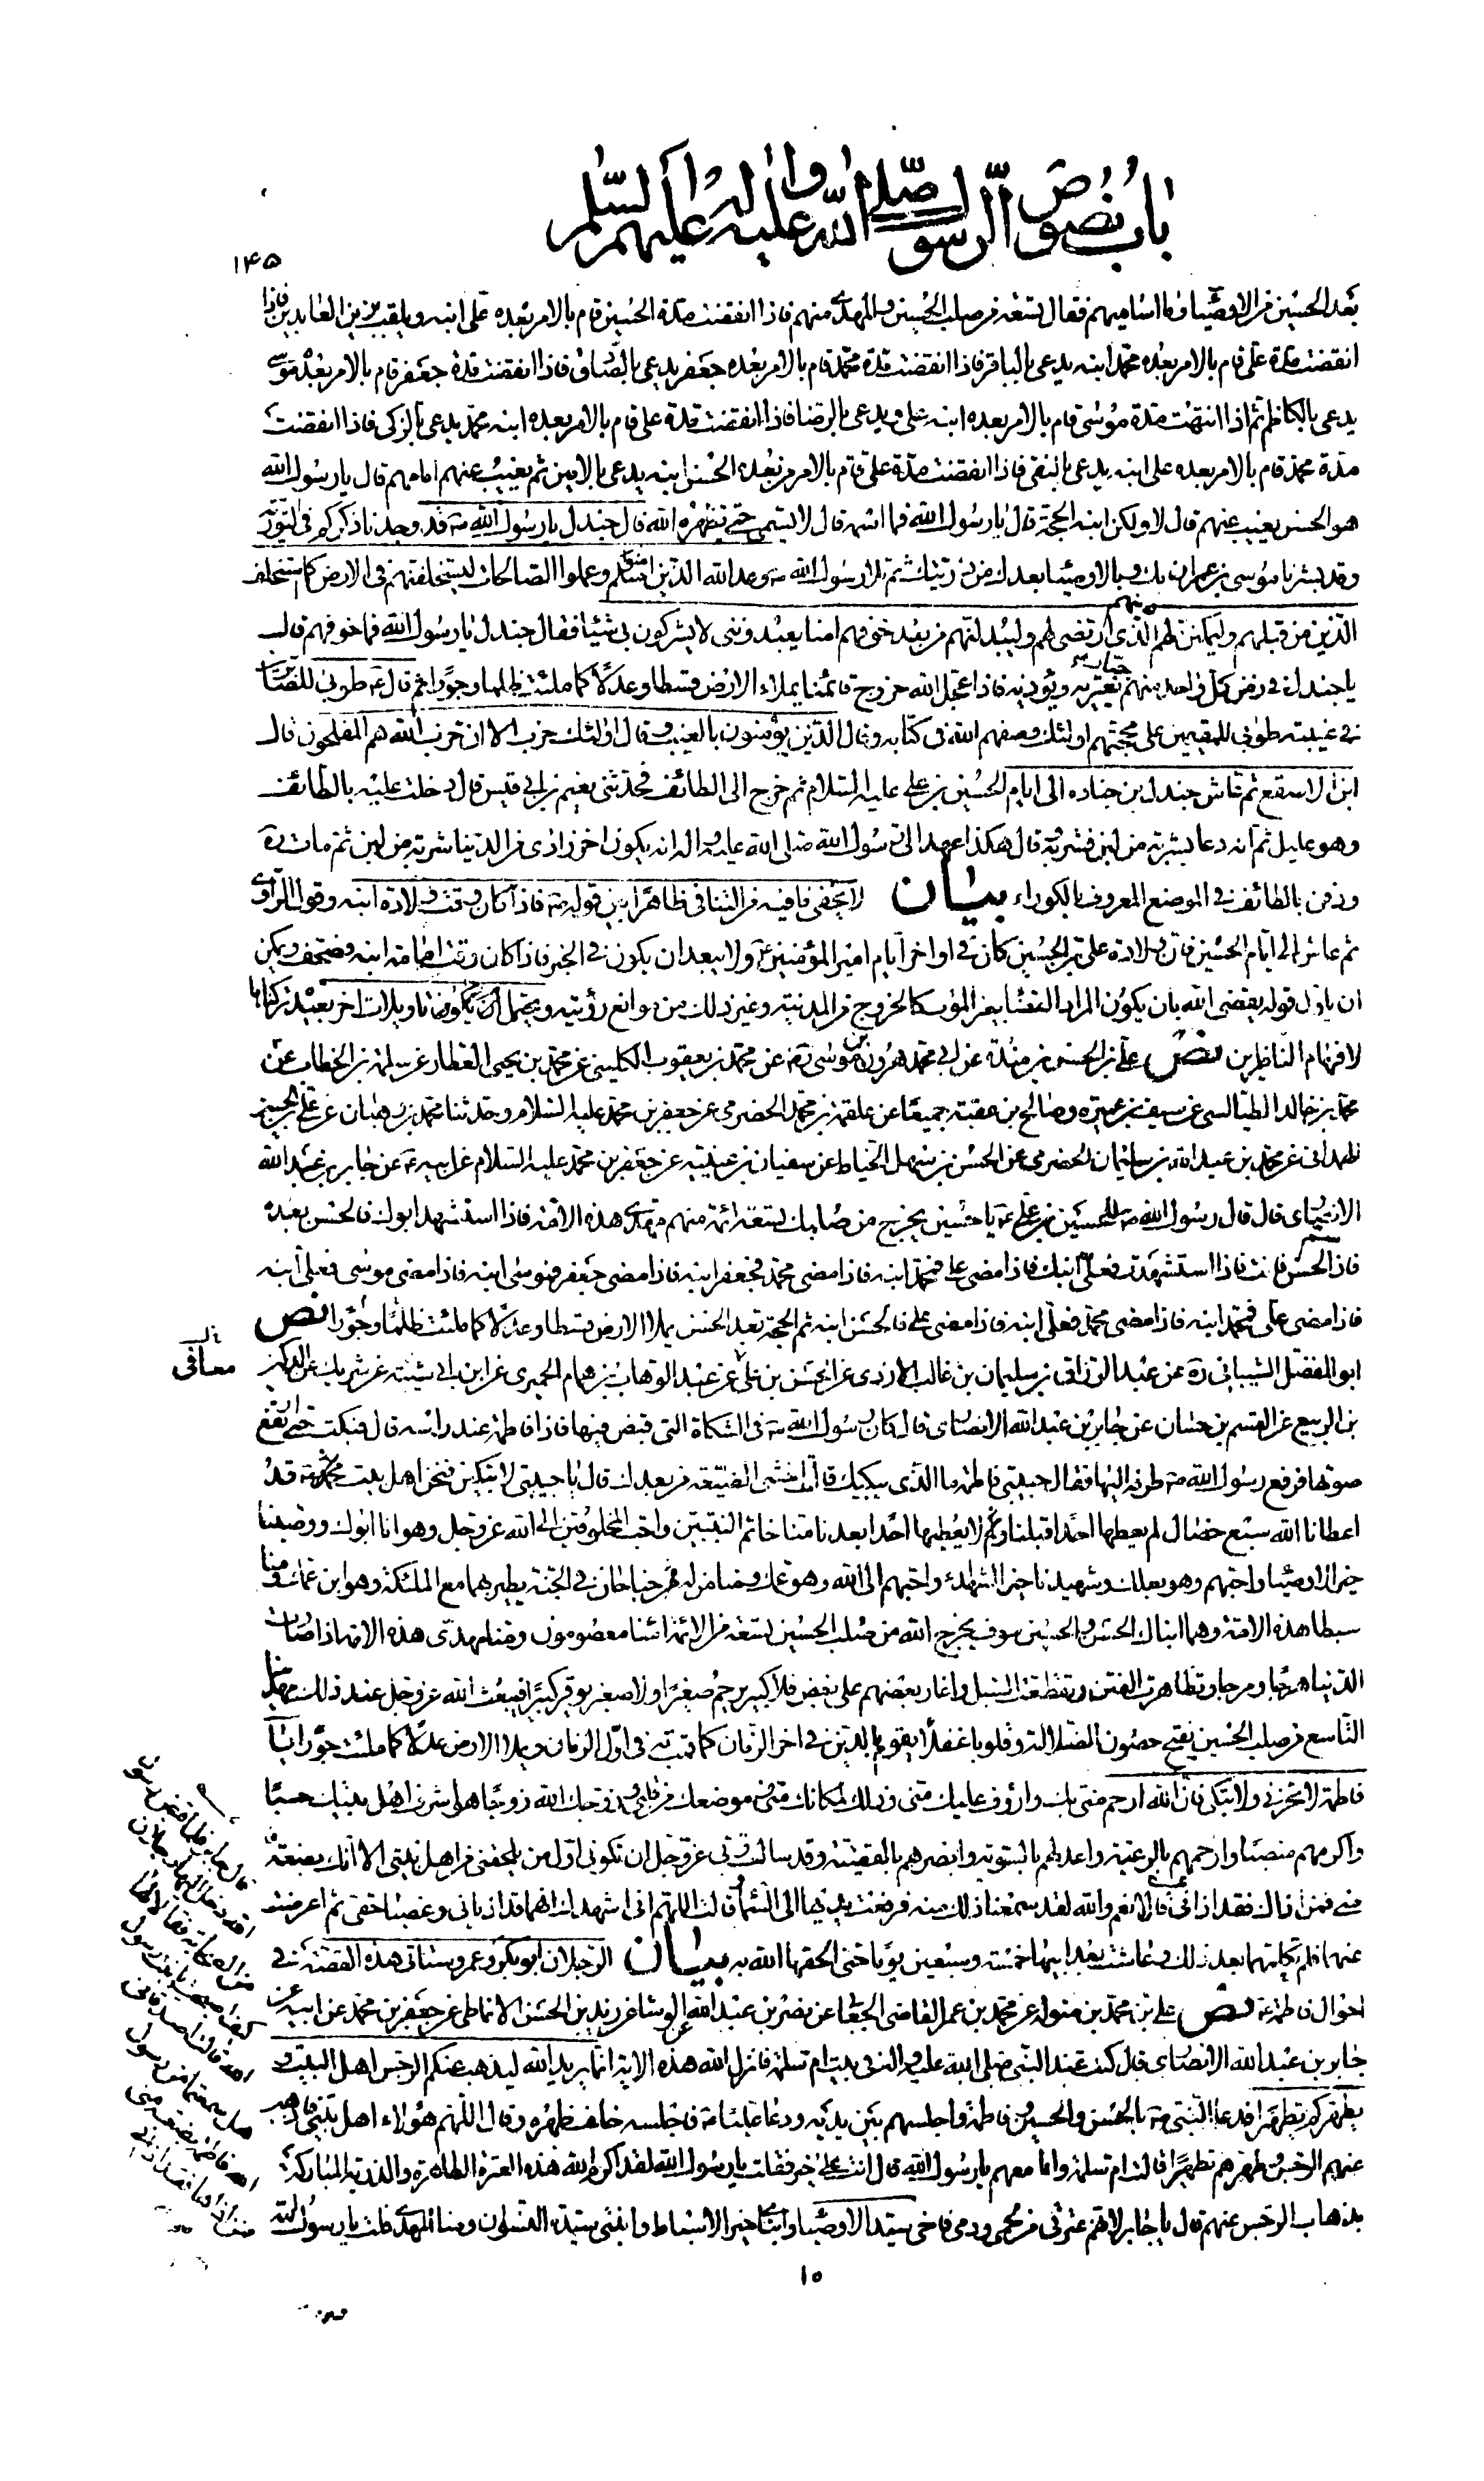 باب نصوص الرسول صلى الله عليه واله عليهم السلام
١٤٥
بعد الحسين من الاوصياء وما اساميهم فقال تسعة من صلب الحسين والمهدي منهم فاذا انقضت مدة الحسين قام بالامر بعده على ابنه ويلقب بزين العابدين فاذا
انقضت مدة على قام بالامر بعده محمد ابنه يدعى بالباقر فاذا انقضت مدة محمد قام بالامر بعده جعفر يدعى بالصادق فاذا انقضت مدة جعفر قام بالامر بعده موسى
يدعى بالكاظم ثم اذا انتهت مدة موسى قام بالامر بعده ابنه على ويدعى بالرضا فاذا انقضت مدة على قام بالامر بعده ابنه محمد يدعى بالزكى فاذا انقضت
مدة محمد قام بالامر بعده على ابنه يدعى بالنقى فاذا انقضت مدة على قام بالامر من بعده الحسن ابنه يدعى بالامين ثم يغيب عنهم امامهم قال يا رسول الله
هو الحسن يغيب عنهم قال لا ولكن ابنه الحجة قال يا رسول الله فما اسمه قال لا يسمى حتى يظهره الله قال جندل يا رسول الله ص قد وجدنا ذكركم فى التورية
وقد بشرنا موسى بن عمران بك وبالاوصياء بعدك من ذريتك ثم تلا رسول الله ص وعد الله الذين امنوا منكم وعملوا الصالحات ليستخلفنهم فى الارض كما استخلف
الذين من قبلهم وليمكنن لهم دينهم الذى ارتضى لهم وليبدلنهم من بعد خوفهم امنا يعبدوننى لا يشركون بى شيئا فقال جندل يا رسول الله فما خوفهم قال
يا جندل فى زمن كل واحد منهم جبار يعتريه ويؤذيه فاذا عجل الله خروج قائمنا يملاء الارض قسطا وعدلا كما ملئت ظلما وجورا ثم قال ع طوبى للصابرين
فى غيبته طوبى للمقيمين على محجتهم اولئك وصفهم الله فى كتابه وقال الذين يؤمنون بالغيب وقال اولئك حزب الله الا ان حزب الله هم المفلحون قال
ابن الاسقع ثم عاش جندل بن جناده الى ايام الحسين بن على عليه السلام ثم خرج الى الطائف فحدثنى نعيم بن ابى قيس قال دخلت عليه بالطائف
وهو عليل ثم انه دعا بشربة من لبن فشربه قال هكذا عهد الى رسول الله صلى الله عليه واله انه يكون اخر زادى من الدنيا شربة من لبن ثم مات ره
ودفن بالطائف فى الموضع المعروف بالكوراء بيان لا يخفى ما فيه من التنافى ظاهرا بين قوله ص فاذا كان وقت ولادة ابنه وقول الراوى
ثم عاش الى ايام الحسين فان ولادة على بن الحسين كان فى اواخر ايام امير المؤمنين ع ولا يبعد ان يكون فى الخبر فاذا كان وقت امامة ابنه فصحف ويمكن
ان ياول قوله يقضى الله بان يكون المراد القضاء بغير الموت كالخروج من المدينة وغير ذلك من موانع رؤيته ويحتمل ان يكون تاويلات اخر بعيدة تركناها
لافهام الناظرين نص على بن الحسن بن مندة عن ابى محمد هرون بن موسى ره عن محمد بن يعقوب الكلينى عن محمد بن يحيى العطار عن سلمة بن الخطاب عن
محمد بن خالد الطيالسى عن سيف بن عميرة وصالح بن عقبة جميعا عن علقمة بن محمد الحضرمى عن جعفر بن محمد عليه السلام وحدثنا محمد بن وهبان عن على بن الحسين
الهمدانى عن محمد بن عبد الله بن سليمان الحضرمى عن الحسن بن سهل الخياط عن سفيان بن عيينة عن جعفر بن محمد عليه السلام عن ابيه ع عن جابر بن عبد الله
الانصارى قال قال رسول الله ص للحسين بن على ع يا حسين يخرج من صلبك تسعة ائمة منهم مهدى هذه الامة فاذا استشهد ابوك فالحسن بعده
فاذا سم الحسن فانت فاذا استشهدت فعلى ابنك فاذا مضى على فمحمد ابنه فاذا مضى محمد فجعفر ابنه فاذا مضى جعفر فموسى ابنه فاذا مضى موسى فعلى ابنه
فاذا مضى على فمحمد ابنه فاذا مضى محمد فعلى ابنه فاذا مضى على فالحسن ابنه ثم الحجة بعد الحسن يملا الارض قسطا وعدلا كما ملئت ظلما وجورا نص
معافى
ابو المفضل الشيبانى ره عن عبد الرزاق بن سليمان بن غالب الازدى عن الحسن بن على عن عبد الوهاب بن همام الحميرى عن ابن ابى شيبة عن شريك عن الركين
بن الربيع عن القسم بن حسان عن جابر بن عبد الله الانصارى قال كان رسول الله ص فى الشكاة التى قبض فيها فاذا فاطمة عند راسه قال فبكت حتى ارتفع
صوتها فرفع رسول الله ص طرفه اليها فقال حبيبتى فاطمة ما الذى يبكيك قالت اخشى الضيعة من بعدك قال يا حبيبتى لا تبكين فنحن اهل بيت قد
اعطانا الله سبع خصال لم يعطها احدا قبلنا ولا يعطيها احدا بعدنا منا خاتم النبيين واحب المخلوقين الى الله عز وجل وهو انا ابوك ووصينا
خير الاوصياء واحبهم وهو بعلك وشهيدنا خير الشهداء واحبهم الى الله وهو عمك ومنا من له جناحان فى الجنة يطير بهما مع الملئكة وهو ابن عمك ومنا
سبطا هذه الامة وهما ابناك الحسن والحسين سوف يخرج الله من صلب الحسين تسعة من الائمة امناء معصومون ومنا مهدى هذه الامة اذا صارت
الدنيا هرجا ومرجا وتظاهرت الفتن وتقطعت السبل واغار بعضهم على بعض فلا كبير يرحم صغيرا ولا صغير يوقر كبيرا فيبعث الله عز وجل عند ذلك مهدينا
التاسع من صلب الحسين يفتح حصون الضلالة وقلوبا غفلا يقوم بالدين فى اخر الزمان كما قمت به فى اول الزمان ويملا الارض عدلا كما ملئت جورا يا
فاطمة لا تحزنى ولا تبكى فان الله ارحم منى بك وارؤف عليك منى وذلك لمكانك منى وموضعك من قلبى وزوجك الله زوجا هو اشرف اهل بيتك حسبا
واكرمهم منصبا وارحمهم بالرعية واعدلهم بالسوية وابصرهم بالقضية وقد سالت ربى عز وجل ان تكونى اول من يلحقنى من اهل بيتى الا انك بضعة
منى فمن اذاك فقد اذانى
عنهما فلم تكلمهما بعد ذلك وعاشت بعد ابيها خمسة وسبعين يوما حتى الحقها الله به بيان الرجلان ابو بكر وعمر وسياتى هذه القصة فى
احوال فاطمة ع نص على بن محمد بن متوله عن محمد بن عمر القاضى الجعابى عن نصر بن عبد الله الوشا عن زيد بن الحسن الانماطى عن جعفر بن محمد عن ابيه عن
جابر بن عبد الله الانصارى قال كنت عند النبى صلى الله عليه واله فى بيت ام سلمة فانزل الله هذه الاية انما يريد الله ليذهب عنكم الرجس اهل البيت و
يطهركم تطهيرا فدعا النبى ص بالحسن والحسين وفاطمة واجلسهم بين يديه ودعا عليا ع فاجلسه خلف ظهره وقال اللهم هؤلاء اهل بيتى فاذهب
عنهم الرجس وطهرهم تطهيرا قالت ام سلمة وانا معهم يا رسول الله قال انت على خير فقلت يا رسول الله لقد اكرم الله هذه العترة الطاهرة والذرية المباركة
بذهاب الرجس عنهم قال يا جابر لانهم عترتى من لحمى ودمى فاخى سيد الاوصياء وابناى خير الاسباط وابنتى سيدة النسوان ومنا المهدى قلت يا رسول الله
١٥